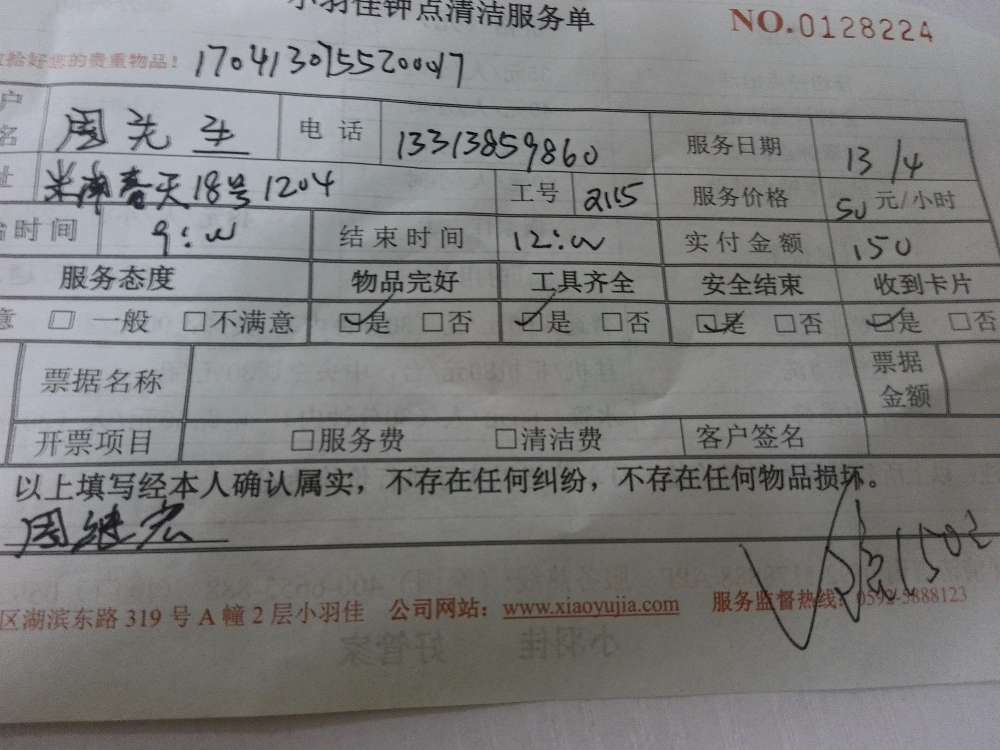 小羽佳钟点清洁服务单 NO.0128224
拾好您的贵重物品! 17041307552000417
户名 周先生 电话 13313859860 服务日期 13/4
址 18号1204 工号 2115 服务价格 50 元/小时
时间 9:00 结束时间 12:00 实付金额 150
服务态度 物品完好 工具齐全 安全结束 收到卡片
意 □ 一般 □不满意 ☑是 □否 ☑是 □否 ☑是 □否 ☑是 □否
票据名称 票据金额
开票项目 □服务费 □清洁费 客户签名
以上填写经本人确认属实，不存在任何纠纷，不存在任何物品损坏。
周继宏
1502
区湖滨东路 319 号 A 幢 2 层小羽佳 公司网站: www.xiaoyujia.com 服务监督热线: 0592-5888123
小羽佳 好管家